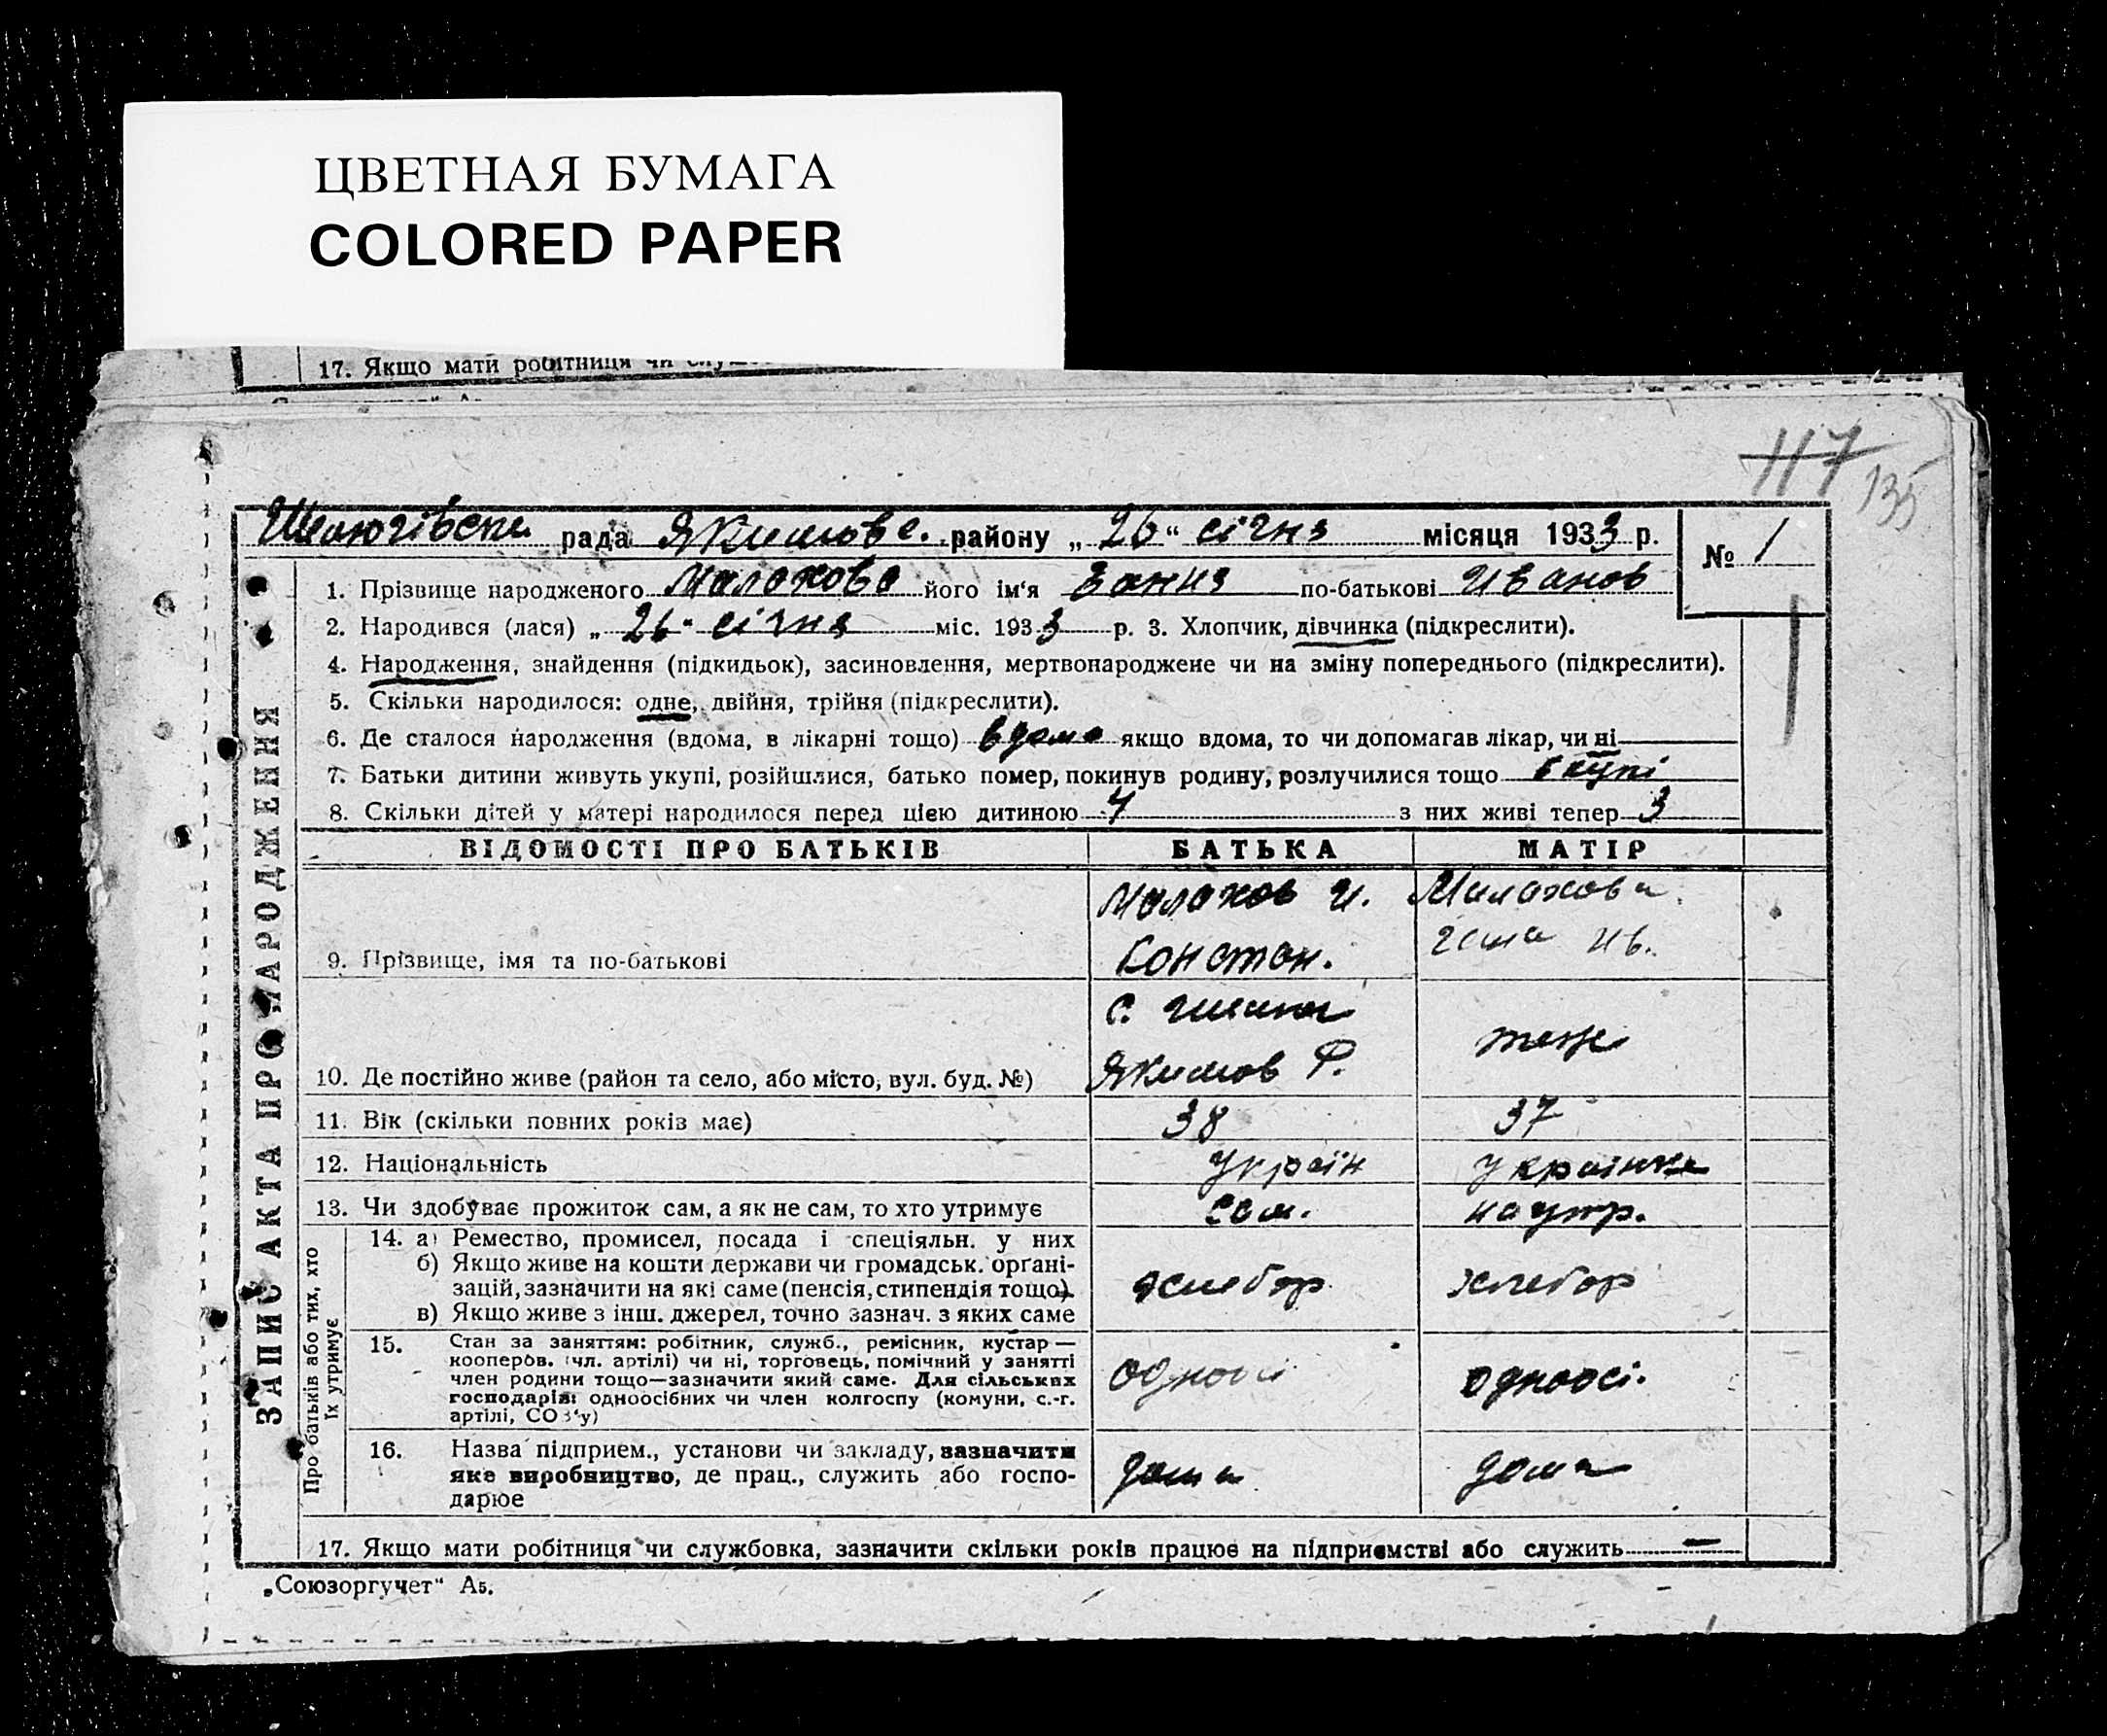 ЦВЕТНАЯ БУМАГА
COLORED PAPER
17. Якщо мати робітниця чи
117 135
рада Якимовс. району „26“ січня місяця 1933 р. № 1
1. Прізвище народженого Малахова його ім‘я по-батькові Иванов
2. Народився (лася) „26“ січня міс. 1933 р. 3. Хлопчик, дівчинка (підкреслити).
4. Народження, знайдення (підкидьок), засиновлення, мертвонароджене чи на зміну попереднього (підкреслити).
5. Скільки народилося: одне, двійня, трійня (підкреслити).
6. Де сталося народження (вдома, в лікарні тощо) вдома якщо вдома, то чи допомагав лікар, чи ні
7. Батьки дитини живуть укупі, розійшлися, батько помер, покинув родину, розлучилися тощо вкупі
8. Скільки дітей у матері народилося перед цією дитиною 7 з них живі тепер 3
ВІДОМОСТІ ПРО БАТЬКІВ БАТЬКА МАТІР
Малахов И. Малахова
9. Прізвище, імя та по-батькові Констан. Ив.
с.
10. Де постійно живе (район та село, або місто, вул. буд. №) Якимов Р. теж
11. Вік (скільки повних років має) 38 37
12. Національність Україн українка
13. Чи здобуває прожиток сам, а як не сам, то хто утримує сам. на утр.
14. а) Ремество, промисел, посада і спеціяльн. у них
б) Якщо живе на кошти держави чи громадськ. органі-
зацій, зазначити на які саме (пенсія, стипендія тощо) хлебор хлебор
в) Якщо живе з інш. джерел, точно зазнач. з яких саме
15. Стан за заняттям: робітник, служб., ремісник, кустар —
кооперов. (чл. артілі) чи ні, торговець, помічний у занятті
член родини тощо—зазначити який саме. Для сільських
господарів: одноосібних чи член колгоспу (комуни, с.-г.
артілі, СОЗ‘у) одноосі одноосі.
16. Назва підприєм., установи чи закладу, зазначити
яке виробництво, де прац., служить або госпо-
дарює дома дома
17. Якщо мати робітниця чи службовка, зазначити скільки років працює на підприємстві або служить —
ЗАПИС АКТА ПРО НАРОДЖЕННЯ
Про батьків або тих, хто
їх утримує
„Союзоргучет“ А5.